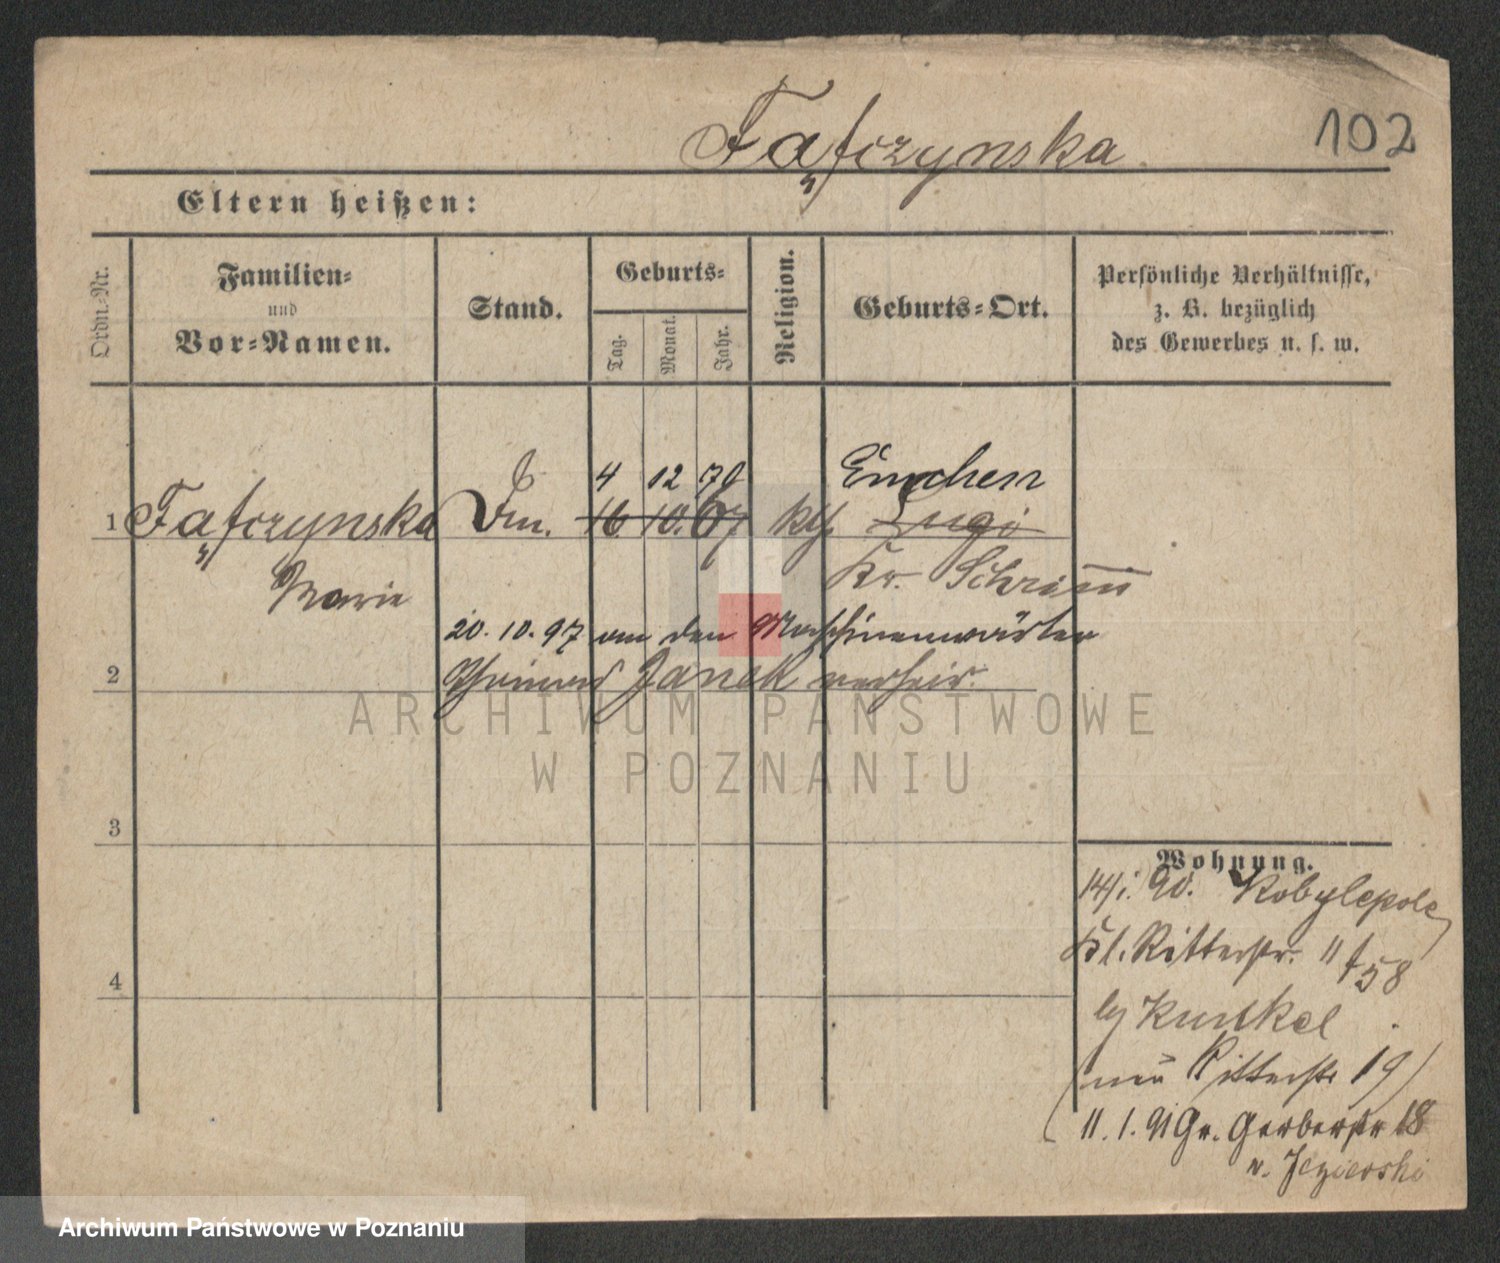 Fąfczynska
102
Eltern heißen:
Ordn.-Nr.
Familien-
und
Vor-Namen.
Stand.
Geburts-
Tag.
Monat.
Jahr.
Religion.
Geburts-Ort.
Persönliche Verhältnisse,
z. B. bezüglich
des Gewerbes u. s. w.
4 12 70 Emchen
1 Fąfczynska 16 10. 67 kth. Lugi
Marie Kr. Schrimm
20. 10. 97 an den Maschinenwärter
2 Janek verheir.
ARCHIWUM PAŃSTWOWE
W POZNANIU
3
Wohnung.
14/1. 90. Kobylepole
Kl. Ritterstr. 11 58
Kunkel
(neu Ritterstr 19)
4
11. 1. 91 Gr. Gerberstr 18
v. Jezierski
Archiwum Państwowe w Poznaniu